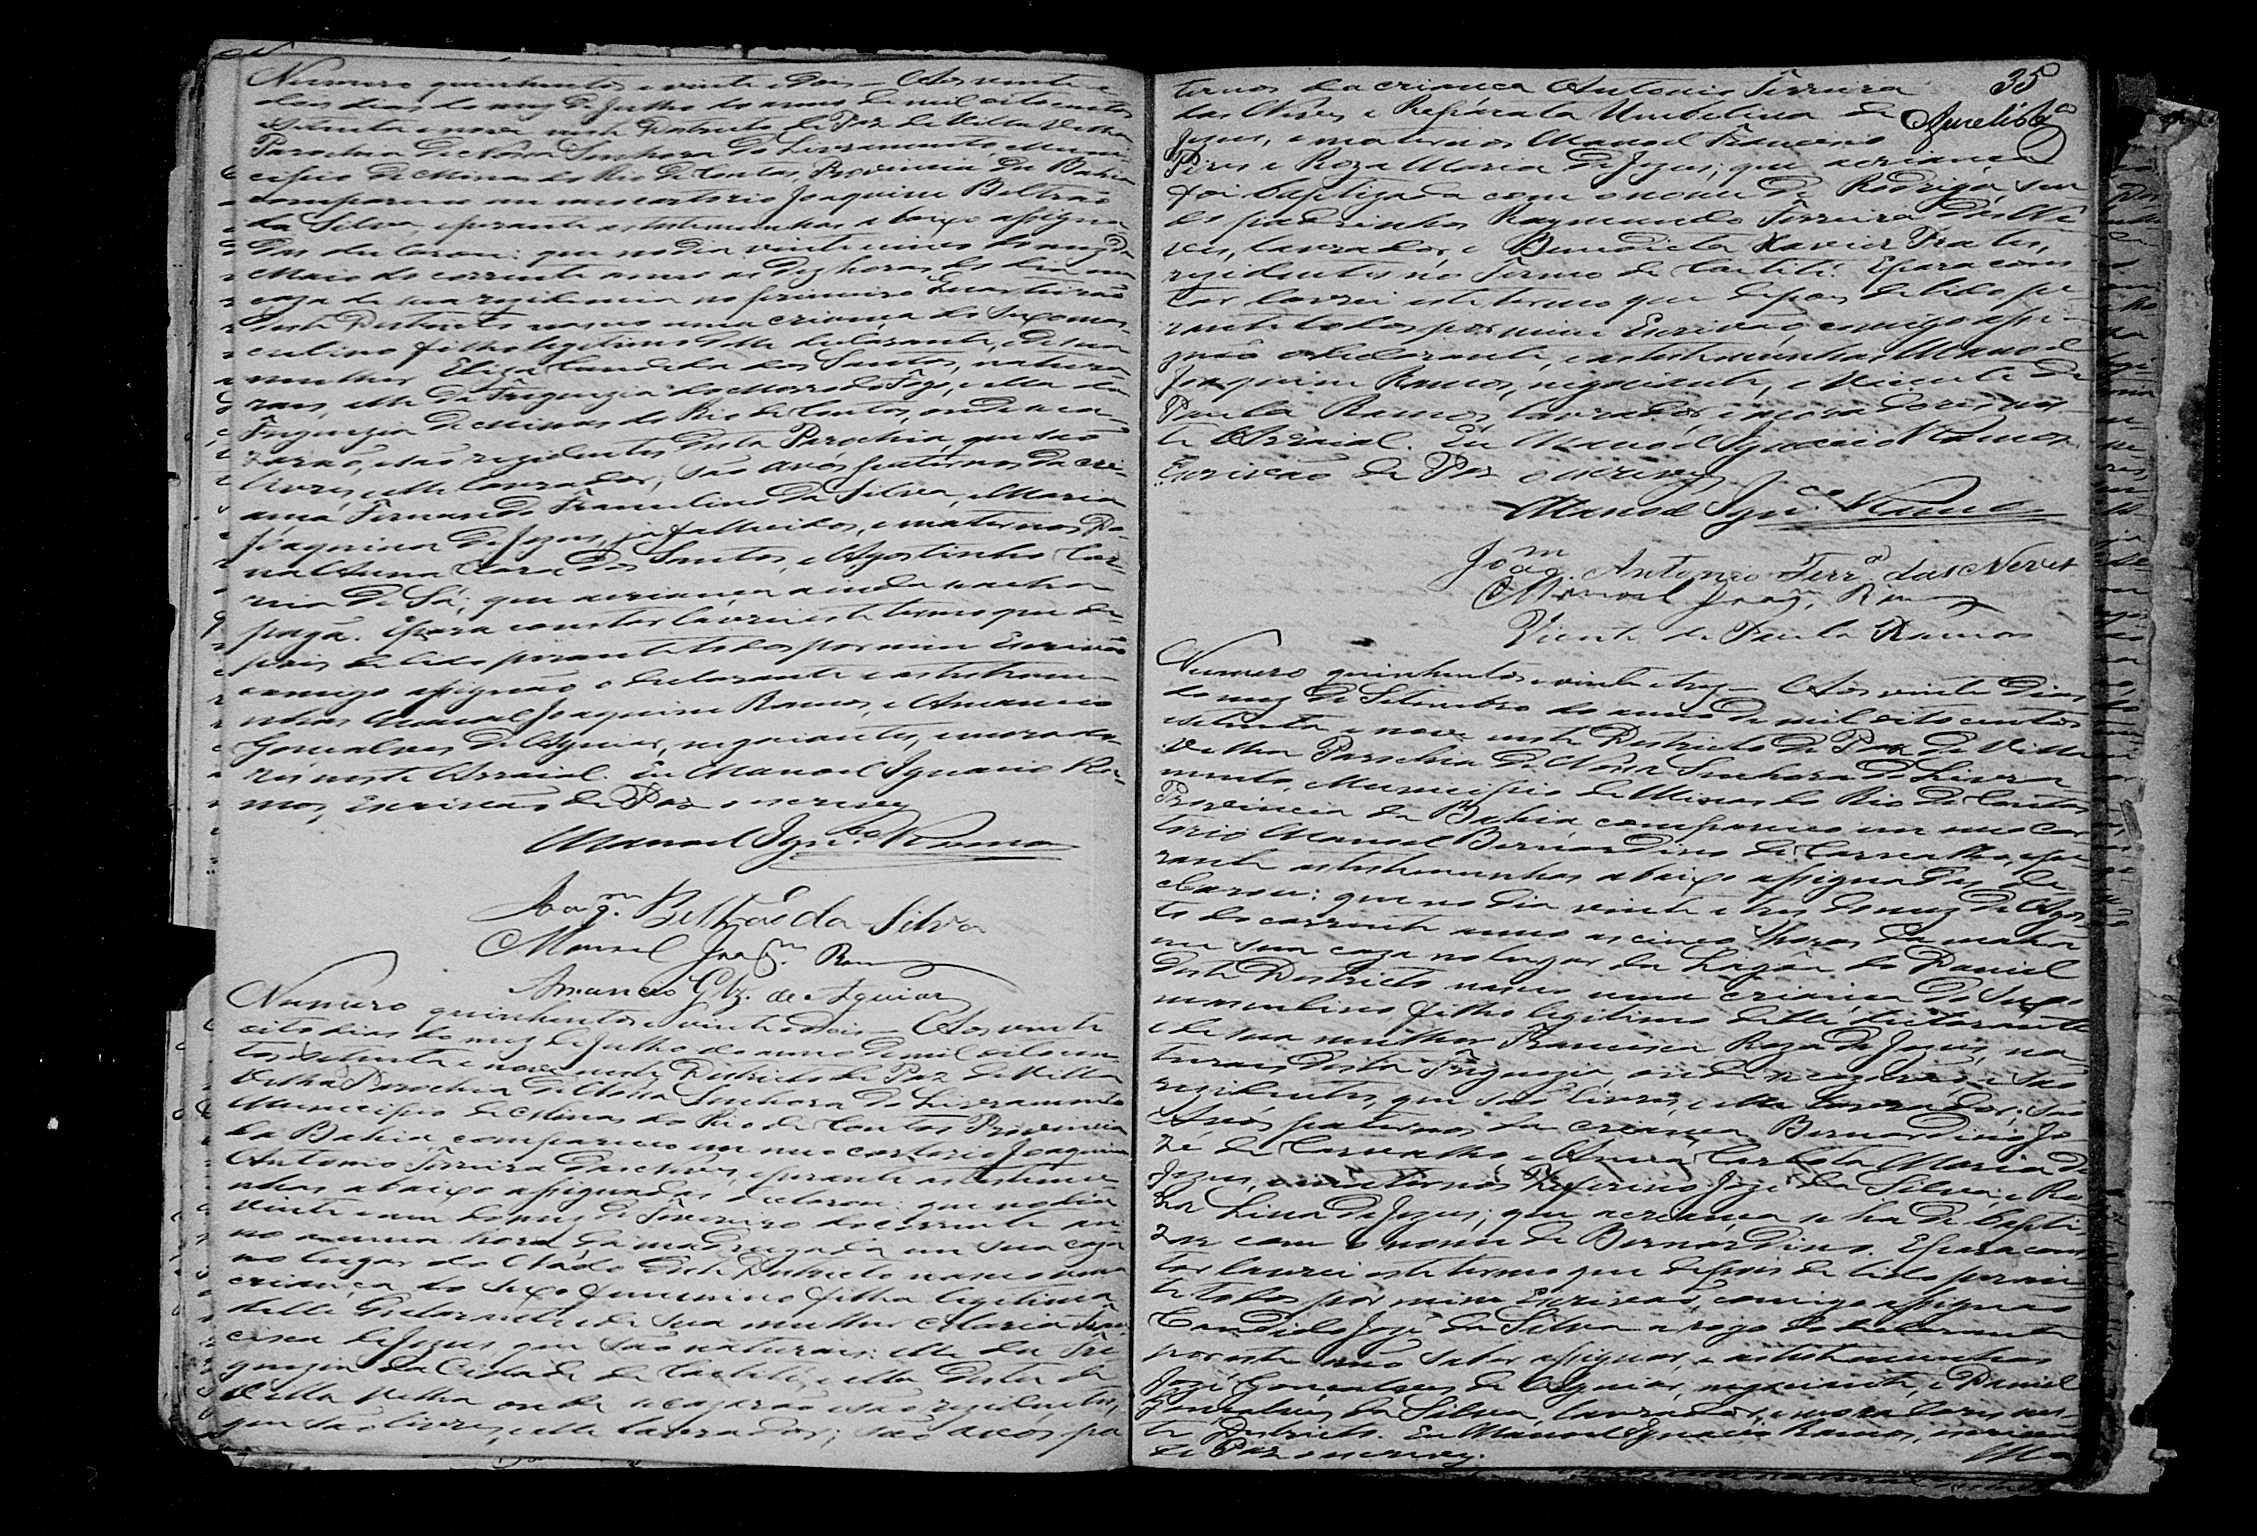 Numero quinhentos e vinte e dois — Aos vinte e
dois dias do mez de Julho do anno de mil oitocentos
setenta e nove neste Districto de Paz de Villa Velha
Parochia de Nossa Senhora do Livramento, Muni-
cipio de Minas do Rio de Contas, Provincia da Bahia
compareceo em meo cartorio Joaquim Beltrão
da Silva, e perante as testemunhas abaixo assigna
das declarou: que no dia vinte e cinco do mez de
Maio do corrente anno as dez horas do dia em
caza de sua rezidencia no primeiro Quarteirão
deste Districto nasceo uma criança do sexo mas
culino filho legitimo delle declarante, e de sua
mulher Eliza Candida dos Santos, natu
raes, elle da Freguezia do Morro do Fogo, e ella da
Freguezia de Minas do Rio de Contas, onde se ca-
zarão, e são rezidentes desta Parochia, que são
livres, e elle lavrador; são avós paternos da cri-
ança Fernando Francelino da Silva, e Maria
Joaquina de Jezus, já fallecidos, e maternos Do-
na Anna Clara dos Santos, e Agostinho Cor-
reia de Sá; que a criança ainda se acha
pagã. E para constar lavrei este termo que de-
pois de lido perante todos por mim Escrivão
comigo assignão o declarante e as testemu-
nhas Manoel Joaquim Ramos, e Amancio
Gonçalves de Aguiar, negociantes, e morado-
res neste Arraial. Eu Manoel Ignacio Ra-
mos, Escrivão de Paz o escrevy
Manoel Ign.co Ramos
Joaq.m Beltrão da Silva
Manoel Joaq.m Ramos
Amancio Glz. de Aguiar
Numero quinhentos e vinte dois — Aos vinte
oito dias do mez de Julho do anno de mil oitocen
tos setenta e nove neste Districto de Paz de Villa
Velha Parochia de Nossa Senhora do Livramento
Municipio de Minas do Rio de Contas Provincia
da Bahia, compareceo em meo cartorio Joaquim
Antonio Ferreira das Neves, e perante as testemu
nhas abaixo assignadas declarou: que no dia
vinte e um do mez de Fevereiro do corrente an
no a uma hora da madrugada em sua caza
no lugar do deste Districto nasceo uma
criança do sexo feminino filha legitima
delle declarante e de sua mulher Maria Fran
cisca de Jezus, que são naturaes: elle da Fre
guezia da Cidade de Caetité, e ella desta de
Villa Velha onde se cazarão e são rezidentes,
que são livres, e elle lavrador; são avós pa
35
ternos da criança Antonio Ferreira
das Neves e Reparata Umbelina de
Jezus, e maternos Manoel Francisco
Pires e Roza Maria de Jezus; que a criança
foi baptizada com o nome de Rodriga, sen
do padrinhos Raymundo Ferreira das Ne
ves, lavrador, e Benedicta Xavier Prates,
rezidentes no Termo de Caetité. E para cons
tar lavrei este termo que depois de lido pe-
rante todos por mim Escrivão, comigo assi-
gnão o declarante, e as testemunhas Manoel
Joaquim Ramos, negociante, e Vicente de
Paula Ramos, lavrador, e moradores nes
te Arraial. Eu Manoel Ignacio Ramos
Escrivão de Paz o escrevy
Manoel Ign.co Ramos
Joaq.m Antonio Ferr.a das Neves
Manoel Joaq.m Ramos
Vicente de Paula Ramos
Numero quinhentos e vinte e trez — Aos vinte dias
do mez de Setembro do anno de mil oitocentos
setenta e nove neste Districto de Paz de Villa
Velha Parochia de Nossa Senhora do Livra
mento, Municipio de Minas do Rio de Contas
Provincia da Bahia compareceo em meo car
torio Manoel Bernardino de Carvalho, e pe
rante as testemunhas abaixo assignadas de
clarou: que no dia vinte e tres do mez de Agos
to do corrente anno as cinco horas da manhã
em sua caza no lugar da Lagôa do Daniel
deste Districto nasceo uma criança do sexo
masculino filho legitimo delle declarante
e de sua mulher Francisca Roza de Jezus, na
turaes desta Freguezia, onde se cazarão e são
rezidentes, que são livres, e elle lavrador; são
Avós paternos da criança Bernardino Jo
zé de Carvalho e Anna Carlota Maria de
Jezus, e maternos Jozé da Silva, e Ro
za Lina de Jezus; que a criança se ha de bapti
zar com o nome de Bernardino. E para cons
tar lavrei este termo que depois de lido peran
te todos por mim Escrivão, comigo assignão
Candido Jozé da Silva a rogo do declarante
por este não saber assignar, e as testemunhas
Jozé Gonçalves de Aguiar, negociante, e Daniel
Gonçalves da Silva, lavrador, e moradores nes-
te Districto. Eu Manoel Ignacio Ramos, escrivão
de Paz o escrevy.
Ma